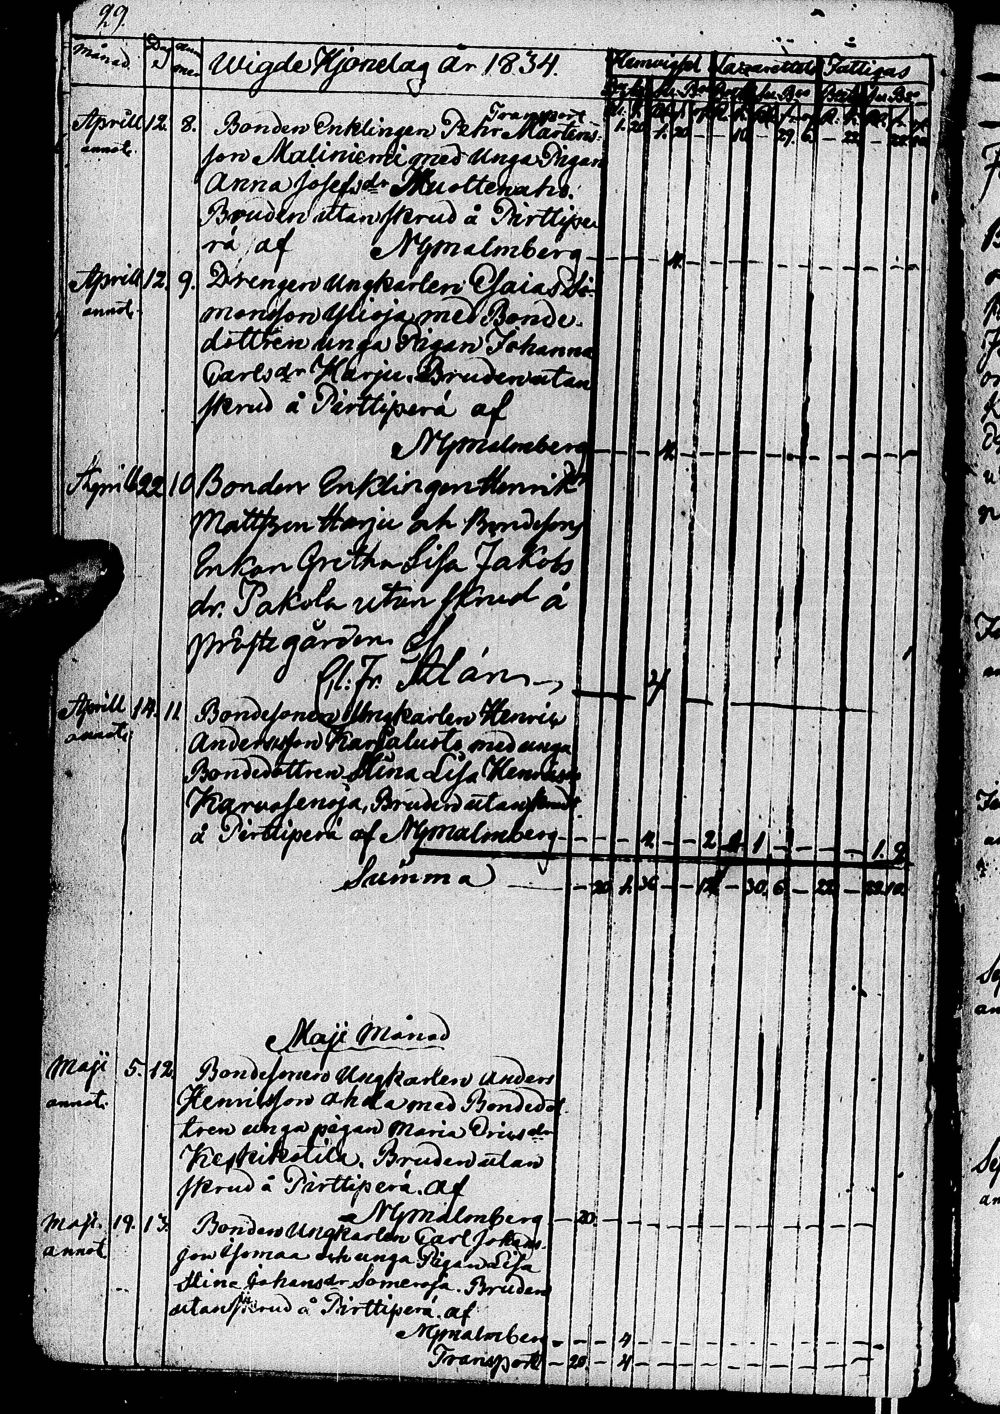 29.
Månad. Dag Wigde Hjonelag År 1834. Hemvigsel Lazarettet Fattigas
Transport
Aprill 12. 8. Bonden Enklingen Pehr Mårtens-
annot. son Maliniemi med Unga Pigan
Anna Josefs dr Muottenaho.
Bruden utan skrud å Pirttipe
rä af Nymalmberg
Aprill 12. 9. Drengen Ungkarlen Esaias Si-
annot. monsson Ylioja med Bonde-
dottren unga Pigan Johanna
Carls dr Harju. Bruden utan
skrud å Pirttiperä af
Nymalmberg 4.
Aprill 22 10 Bonden Enklingen Henrik
Mattsson Harju och Bondesons
Enkan Gretha Lisa Jakobs
dr. Pakola utan skrud å
prästegården af
Fr. Alán 4
Aprill 14. 11. Bondesonen Ungkarlen Henric
annot. Andersson Karjaluoto med unga
Bondedottren Stina Lisa Henrics
Bruden utan skrud
å Pirttiperä af Nymalmberg 4. 2 1 1. 2
Summa 20. 1. 36 30. 6 22 22. 10.
Maji Månad
Maji 5. 12. Bondesonen Ungkarlen Anders
annot. Henricsson Ahola med Bondedot
tren unga pigan Maria Erics dr
Keskikotila. Bruden utan
skrud å Pirttiperä. af
Nymalmberg 20.
Maji. 19. 13. Bonden Ungkarlen Carl Johans-
annot son Isomaa och unga Pigan Lisa
Stina Johans dr Someroja. Bruden
utan skrud å Pirttiperä. af
Nymalmberg 4.
Transport 20. 4.